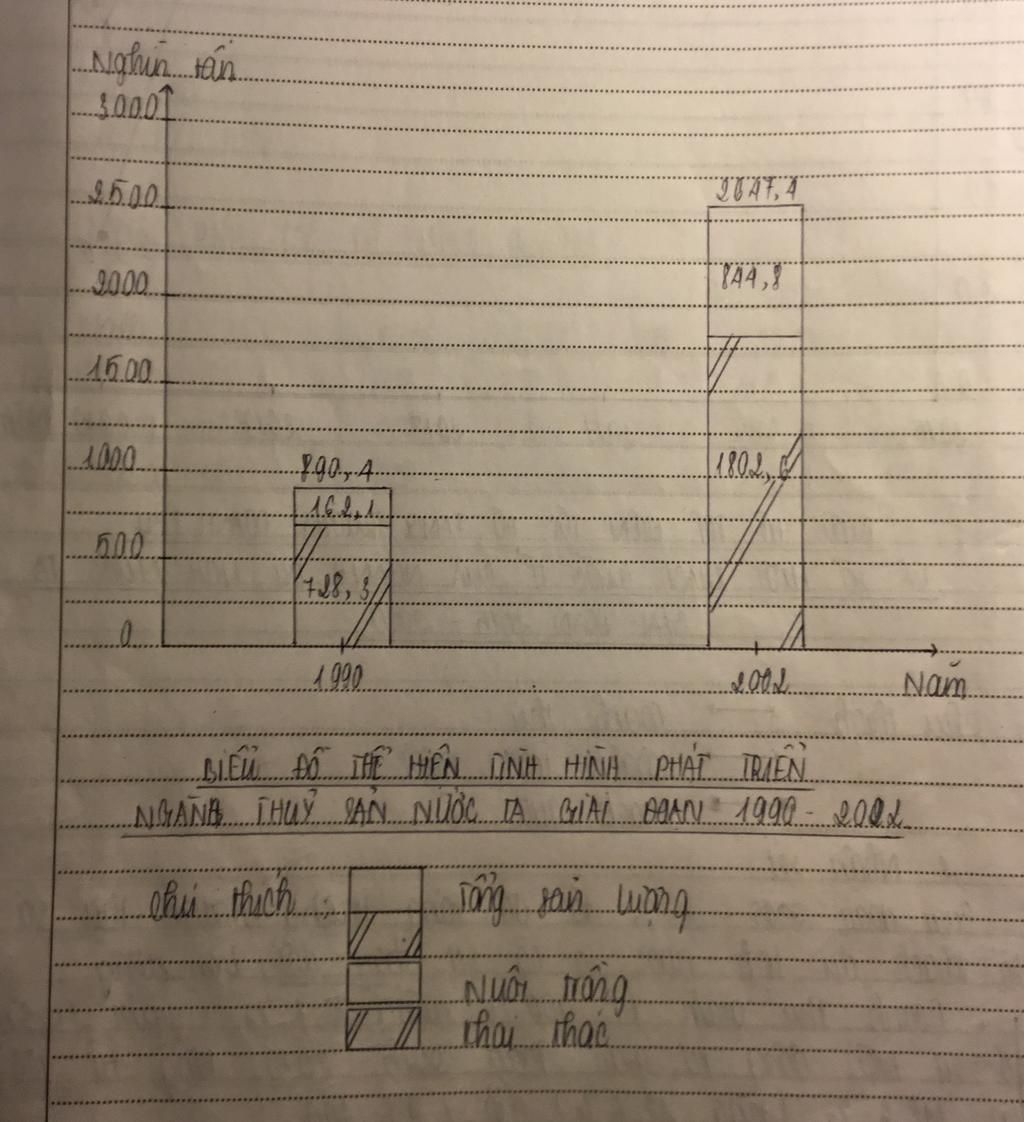 Nghìn tấn
3000
2500
2000
1500
1000
500
0
2647,4
844,8
1802,6
890,4
162,1
728,3
1990
2002
Năm
BIỂU ĐỒ THỂ HIỆN TÌNH HÌNH PHÁT TRIỂN
NGÀNH THUỶ SẢN NƯỚC TA GIAI ĐOẠN 1990 - 2002
Chú thích :
Tổng sản lượng
Nuôi trồng
Khai thác